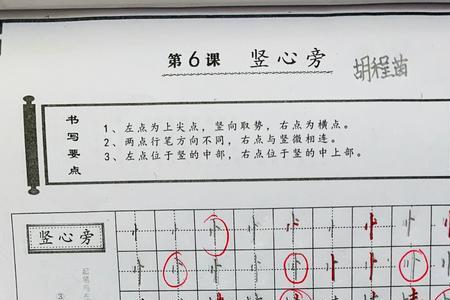 第6课 竖心旁 胡程茵
书写要点
1、左点为上尖点，竖向取势，右点为横点。
2、两点行笔方向不同，右点与竖微相连。
3、左点位于竖的中部，右点位于竖的中上部。
竖心旁
忄 忄 忄 忄 忄 忄 忄 忄 忄
忄 忄 忄 忄 忄 忄 忄 忄 忄